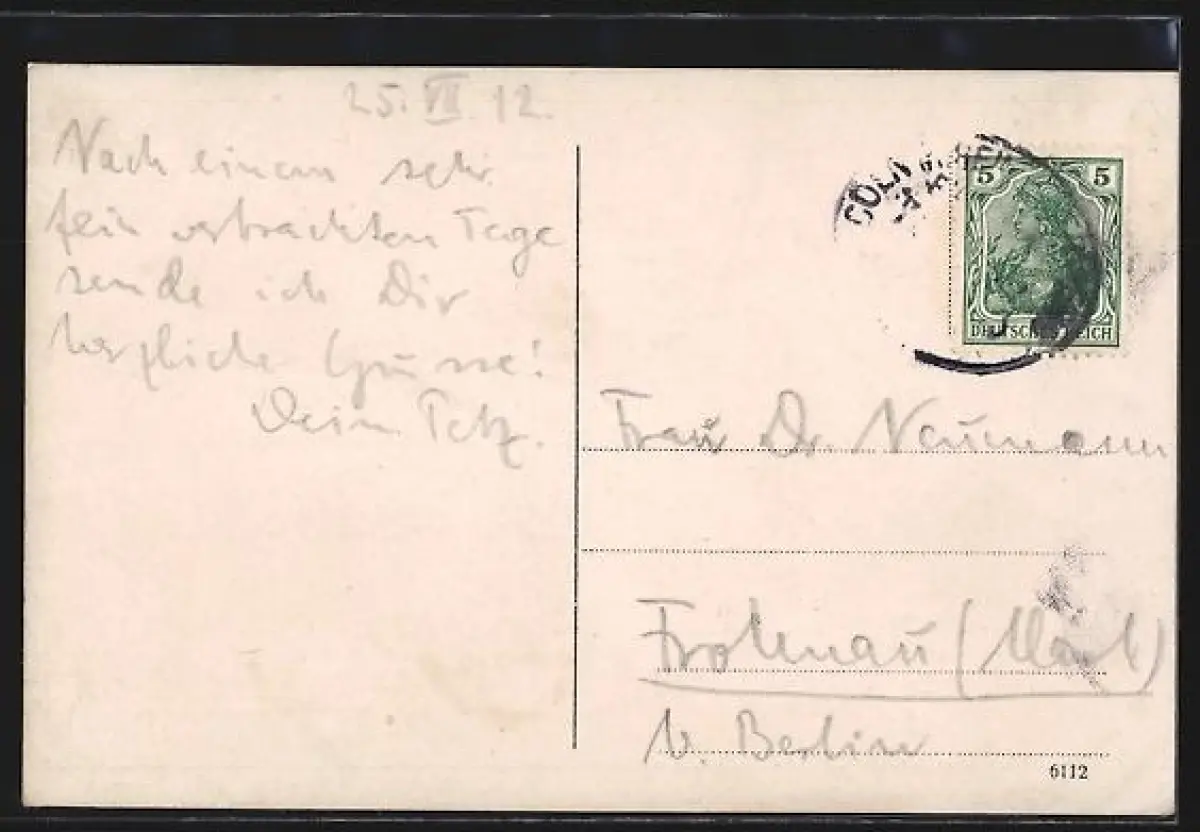 25. VII. 12.
Nach einem sehr
fein verbrachten Tage
sende ich Dir
herzliche Grüsse!
Dein
CÖLN
5 5
DEUTSCHES REICH
Frau Dr. Neumann
Frohnau (Mark)
b. Berlin
6112